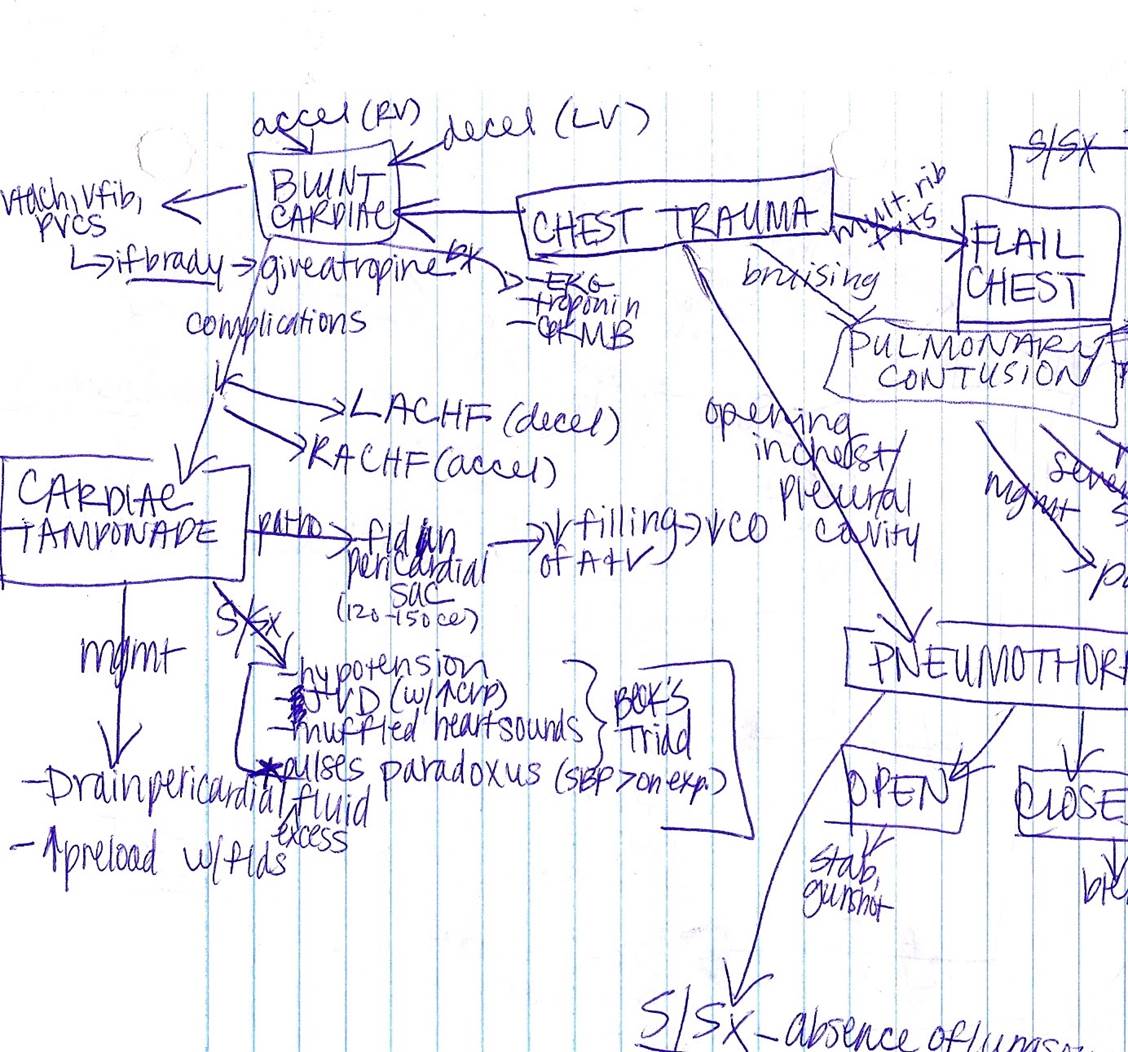 accel (RV)
decel (LV)
BLUNT
CARDIAC
vtach, vfib,
PVCS
↳ if brady → give atropine
DX
-EKG
-troponin
-CPKMB
complications
LACHF (decel)
RACHF (accel)
CHEST TRAUMA
mult. rib
fxts
S/SX
FLAIL
CHEST
bruising
PULMONARY
CONTUSION
mgmt
opening
in chest/
pleural
cavity
CARDIAC
TAMPONADE
patho
fld in
pericardial
sac
(120-150cc)
↓ filling → ↓CO
of A+V
S/SX
-hypotension
-JVD (w/↑CVP)
-muffled heart sounds
BECK'S
Triad
*pulses paradoxus (SBP > on exp.)
mgmt
-Drain pericardial fluid
excess
-↑preload w/flds
PNEUMOTHOR
OPEN
CLOSE
stab,
gunshot
S/SX - absence of lung